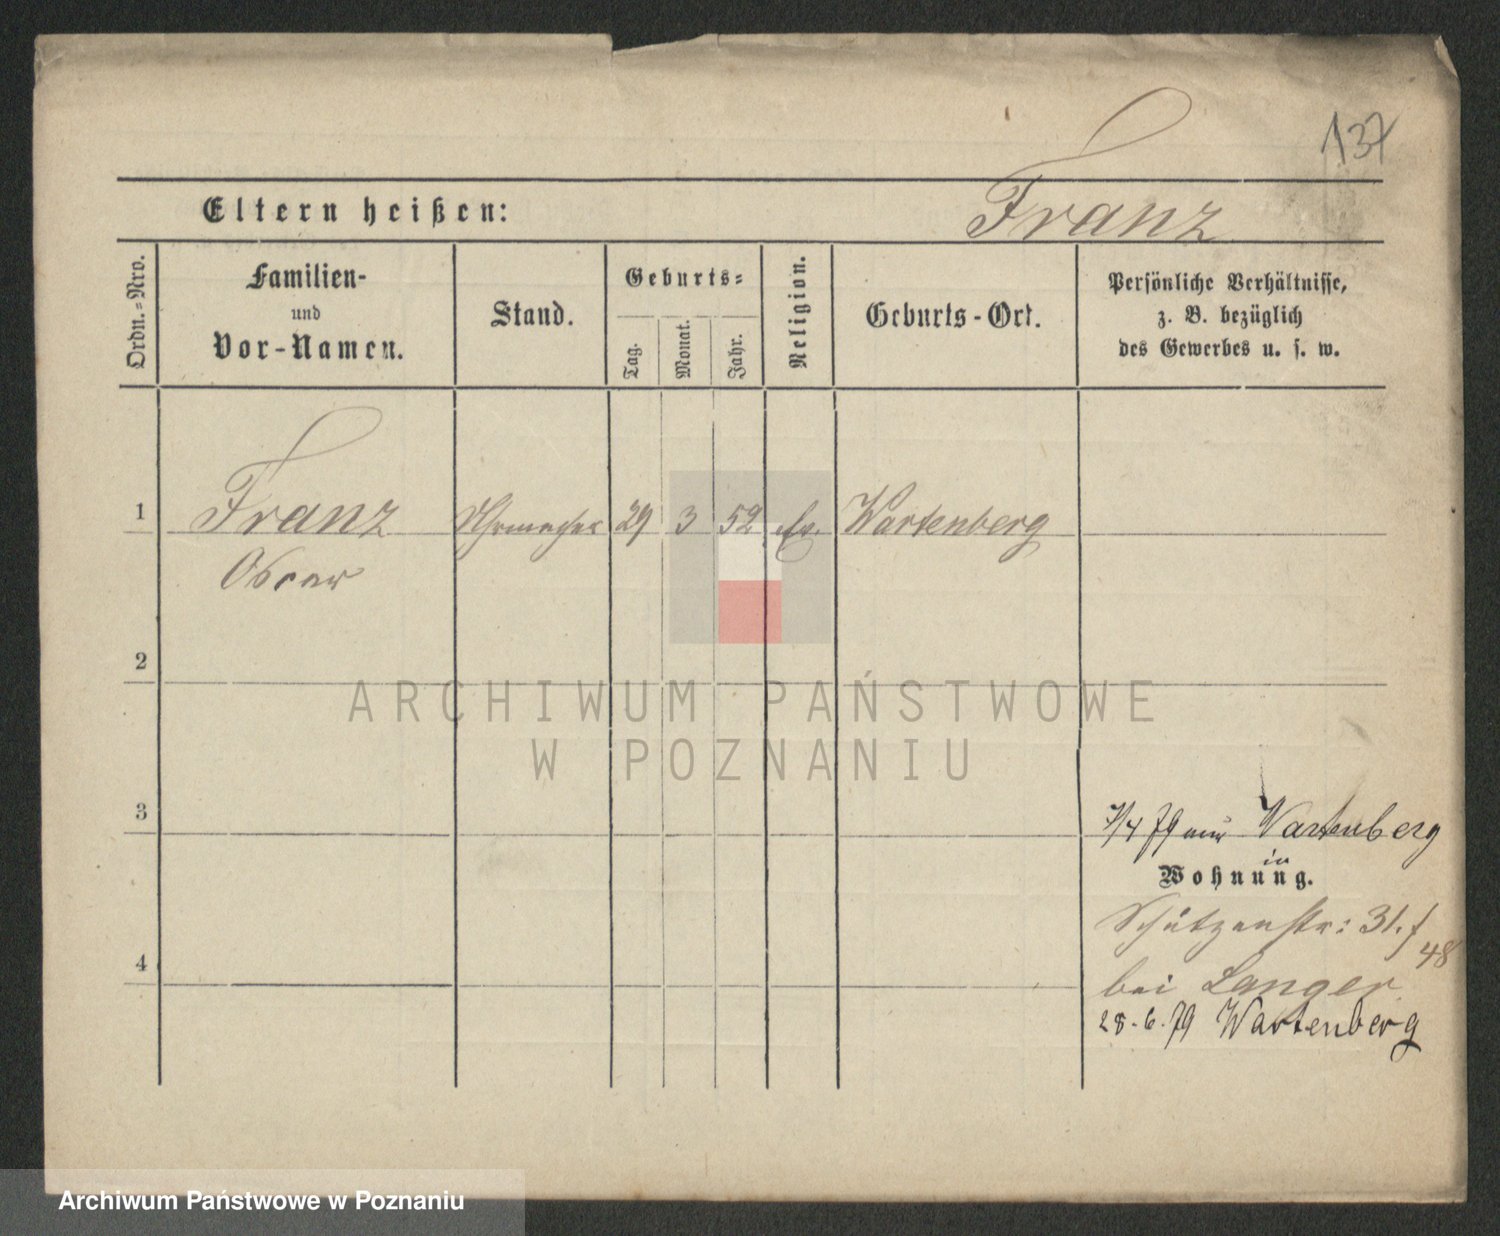 137
Eltern heißen:
Franz
Ordn.-Nro.
Familien-
und
Vor-Namen.
Stand.
Geburts-
Tag.
Monat.
Jahr.
Religion.
Geburts-Ort.
Persönliche Verhältnisse,
z. B. bezüglich
des Gewerbes u. s. w.
1
Franz Uhrmacher 29 3 52 ev. Wartenberg
Oscar
2
ARCHIWUM PAŃSTWOWE
W POZNANIU
3
7/4 79 Wartenberg
in
Wohnung.
Schützenstr: 31. /
48
4
bei Langer
28-6.79 Wartenberg
Archiwum Państwowe w Poznaniu